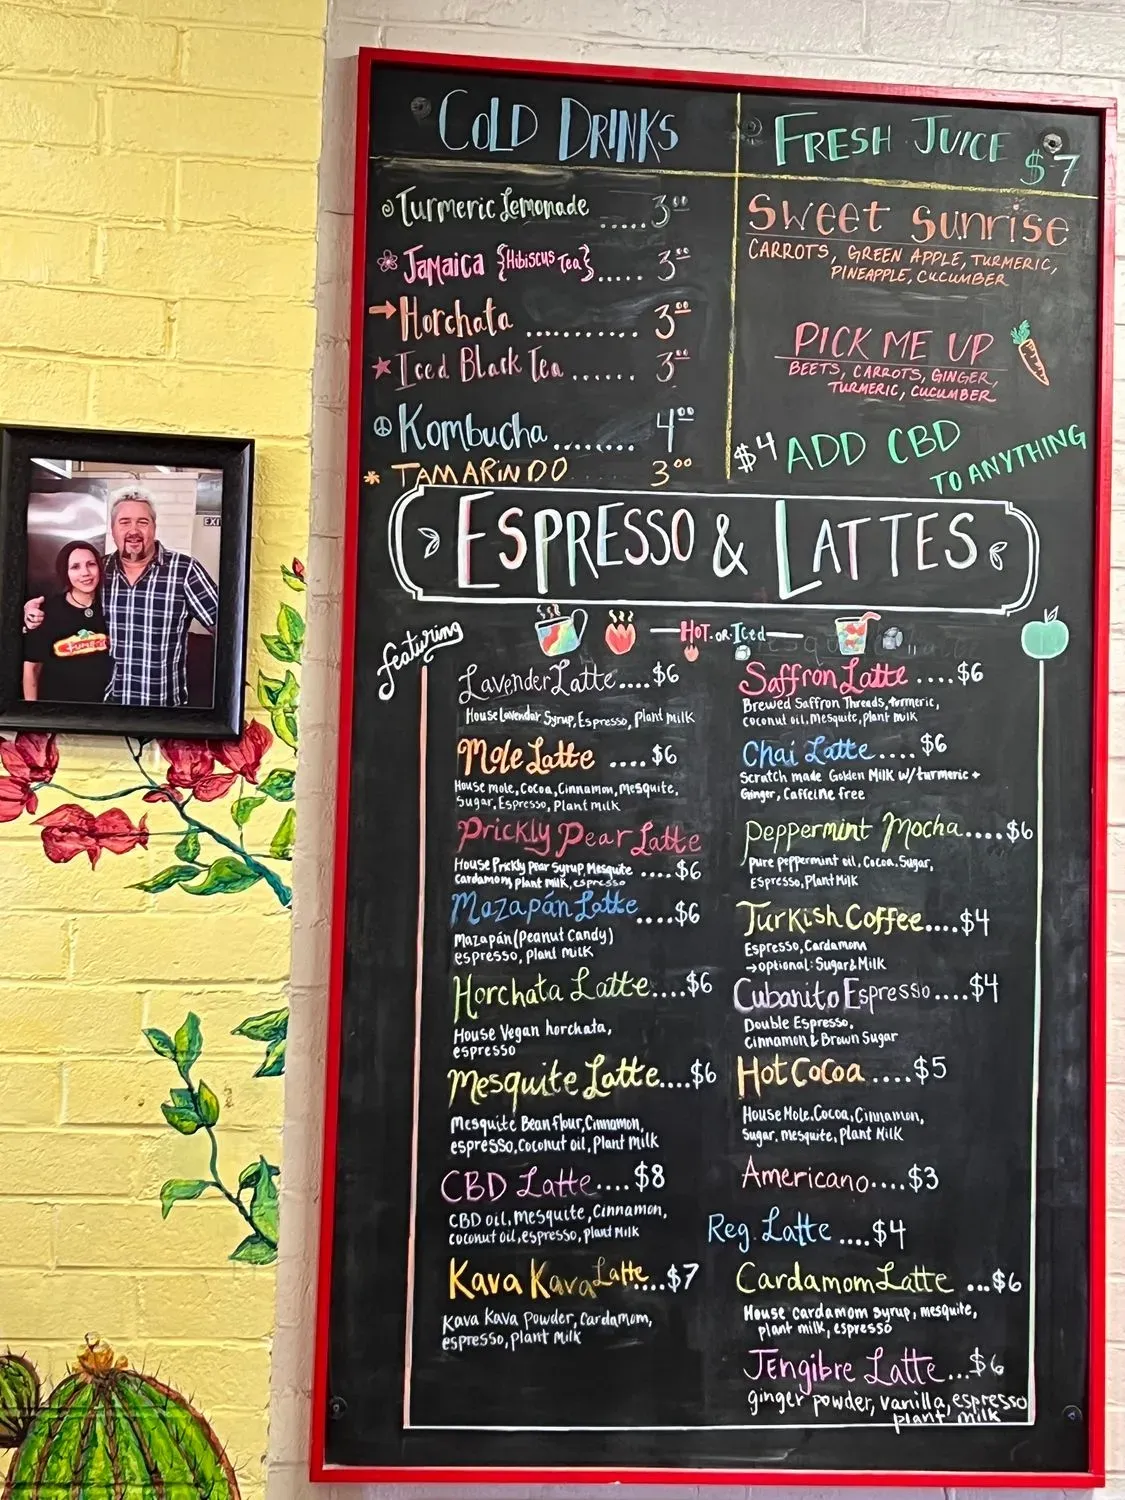 COLD DRINKS
Turmeric Lemonade ..... 3.00
Jamaica {Hibiscus Tea} ..... 3.00
Horchata ........... 3.00
Iced Black Tea ...... 3.00
Kombucha ........ 4.00
TAMARINDO 3.00
FRESH JUICE $7
Sweet Sunrise
CARROTS, GREEN APPLE, TURMERIC,
PINEAPPLE, CUCUMBER
PICK ME UP
BEETS, CARROTS, GINGER,
TURMERIC, CUCUMBER
$4 ADD CBD
TO ANYTHING
ESPRESSO & LATTES
featuring
HOT OR Iced
Lavender Latte....$6
House Lavender Syrup, Espresso, Plant milk
Mole Latte ....$6
House mole, Cocoa, Cinnamon, Mesquite,
Sugar, Espresso, Plant milk
Prickly Pear Latte
House Prickly pear Syrup, Mesquite ....$6
Cardamom, plant milk, espresso
Mazapán Latte....$6
Mazapán (Peanut Candy)
espresso, plant milk
Horchata Latte....$6
House Vegan horchata,
espresso
Mesquite Latte....$6
Mesquite Bean flour, Cinnamon,
espresso, Coconut oil, Plant milk
CBD Latte....$8
CBD oil, mesquite, Cinnamon,
coconut oil, espresso, Plant Milk
Kava Kava Latte....$7
Kava Kava powder, Cardamom,
espresso, plant milk
Saffron Latte ....$6
Brewed Saffron Threads, turmeric,
coconut oil, mesquite, plant milk
Chai Latte....$6
Scratch made Golden Milk w/ turmeric +
Ginger, Caffeine free
Peppermint Mocha....$6
pure peppermint oil, Cocoa, Sugar,
Espresso, Plant Milk
Turkish Coffee....$4
Espresso, Cardamom
→ optional: Sugar & Milk
Cubanito Espresso....$4
Double Espresso,
Cinnamon & Brown Sugar
Hot Cocoa ....$5
House Mole, Cocoa, Cinnamon,
Sugar, mesquite, Plant Milk
Americano....$3
Reg. Latte ....$4
Cardamom Latte ...$6
House cardamom syrup, mesquite,
plant milk, espresso
Jengibre Latte...$6
ginger powder, vanilla, espresso
plant milk